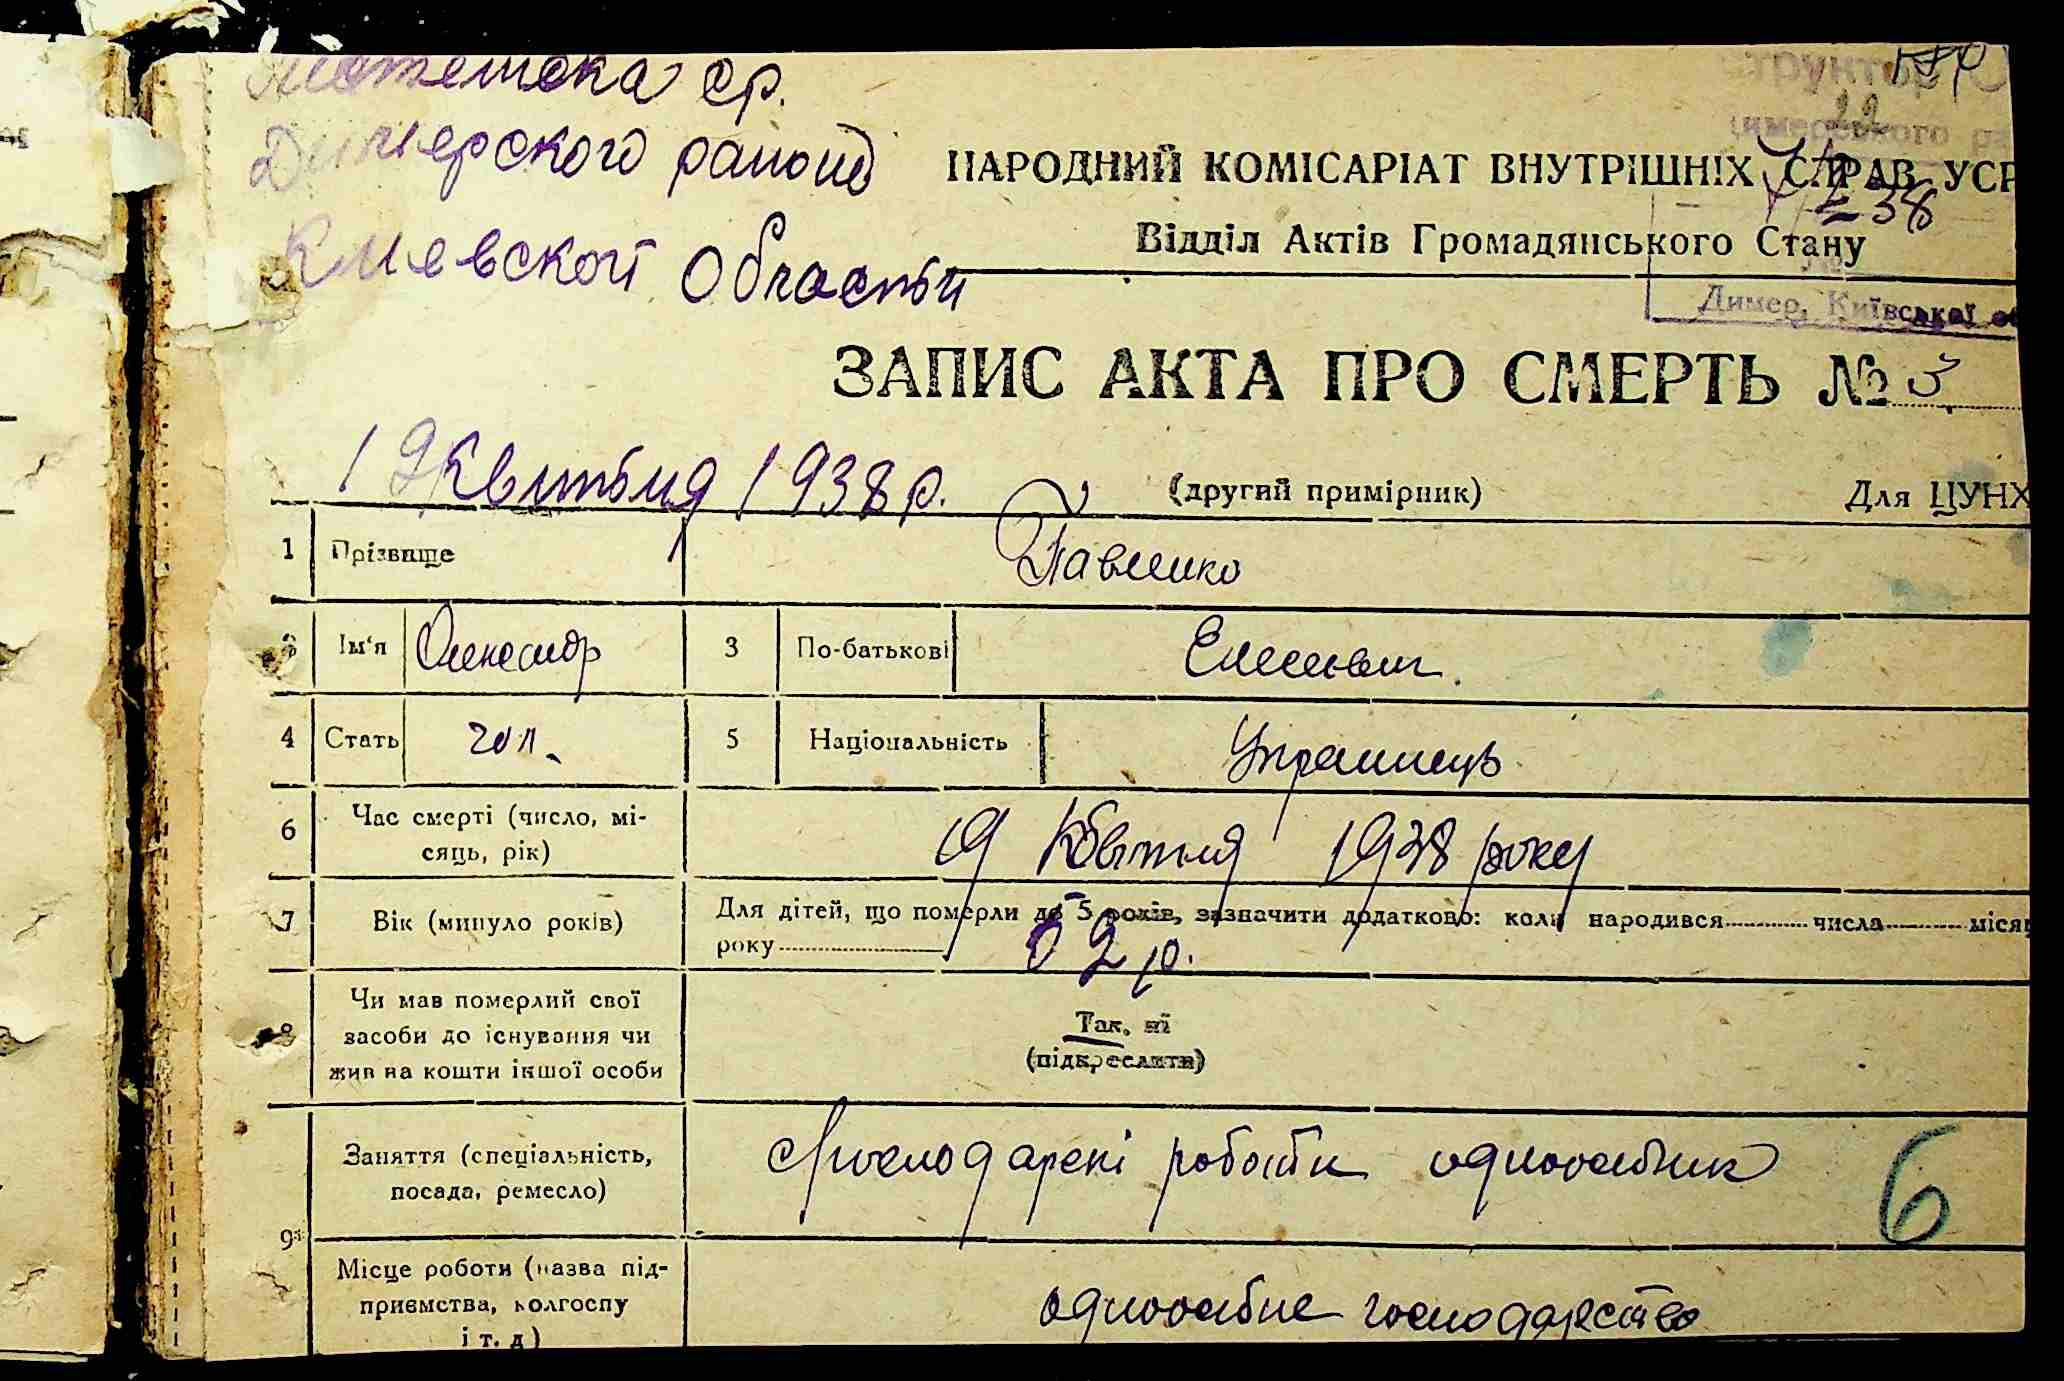 ср.
Димерского району
Киевской Области
НАРОДНИЙ КОМІСАРІАТ ВНУТРІШНІХ СПРАВ УСР
38
Відділ Актів Громадянського Стану
Димер, Київської об
ЗАПИС АКТА ПРО СМЕРТЬ № 3
19 Квітня 1938 р.
(другий примірник)
Для ЦУНХ
1 Прізвище Павленко
2 Ім'я Олександр 3 По-батькові Елесеевич
4 Стать чол. 5 Національність Українець
6 Час смерті (число, мі-
сяць, рік) 19 Квітня 1938 року
7 Вік (минуло років) Для дітей, що померли до 5 років, зазначити додатково: коли народився числа місяц
року
62 р.
8 Чи мав померлий свої
засоби до існування чи
жив на кошти іншої особи
Так, ні
(підкреслити)
9 Заняття (спеціальність,
посада, ремесло) Господарскі роботи одноосібник
6
Місце роботи (назва під-
приємства, колгоспу
і т. д) одноосібне господарство